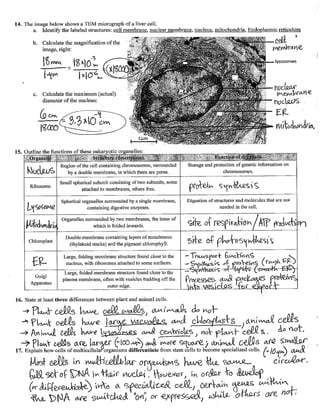 14. The image below shows a TEM micrograph of a liver cell.
a. Identify the labeled structures: cell membrane, nuclear membrane, nucleus, mitochondria, Endoplasmic reticulum
b. Calculate the magnification of the image, right:
18mm = 18×10⁻³ = x18000
1μm 1×10⁻⁶
c. Calculate the maximum (actual) diameter of the nucleus:
6cm = 3.3×10⁻⁴ cm
18000
cell membrane
lysosomes
nuclear membrane
nucleus
ER
mitochondria
1um
15. Outline the functions of these eukaryotic organelles:
Organelle Structure description Function of organelle
Nucleus Region of the cell containing chromosomes, surrounded by a double membrane, in which there are pores. Storage and protection of genetic information on chromosomes.
Ribosome Small spherical subunit consisting of two subunits, some attached to membranes, others free. protein synthesis
Lysosome Spherical organelles surrounded by a single membrane, containing digestive enzymes. Digestion of structures and molecules that are not needed in the cell.
Mitochondria Organelles surrounded by two membranes, the inner of which is folded inwards. site of respiration/ATP production
Chloroplast Double-membrane containing layers of membranes (thylakoid stacks) and the pigment chlorophyll. site of photosynthesis
ER Large, folding membrane structure found close to the nucleus, with ribosomes attached to some surfaces. - Transport functions
- Synthesis of proteins (rough ER)
- Synthesis of lipids (smooth ER)
Golgi Apparatus Large, folded membrane structure found close to the plasma membrane, often with vesicles budding off the outer edge. Processes and packages proteins into vesicles for export
16. State at least three differences between plant and animal cells.
→ Plant cells have cell walls, animals do not
→ Plant cells have large vacuoles and chloroplasts, animal cells do not.
→ Animal cells have lysosomes and centrioles, not plant cells.
→ Plant cells are larger (~100μm) and more square; animal cells are smaller (~10μm) and circular.
17. Explain how cells of multicellular organisms differentiate from stem cells to become specialized cells.
Most cells in multicellular organisms have the same
full set of DNA in their nuclei. However, in order to develop
(or differentiate) into a specialized cell, certain genes within
the DNA are switched 'on', or expressed, while others are not.